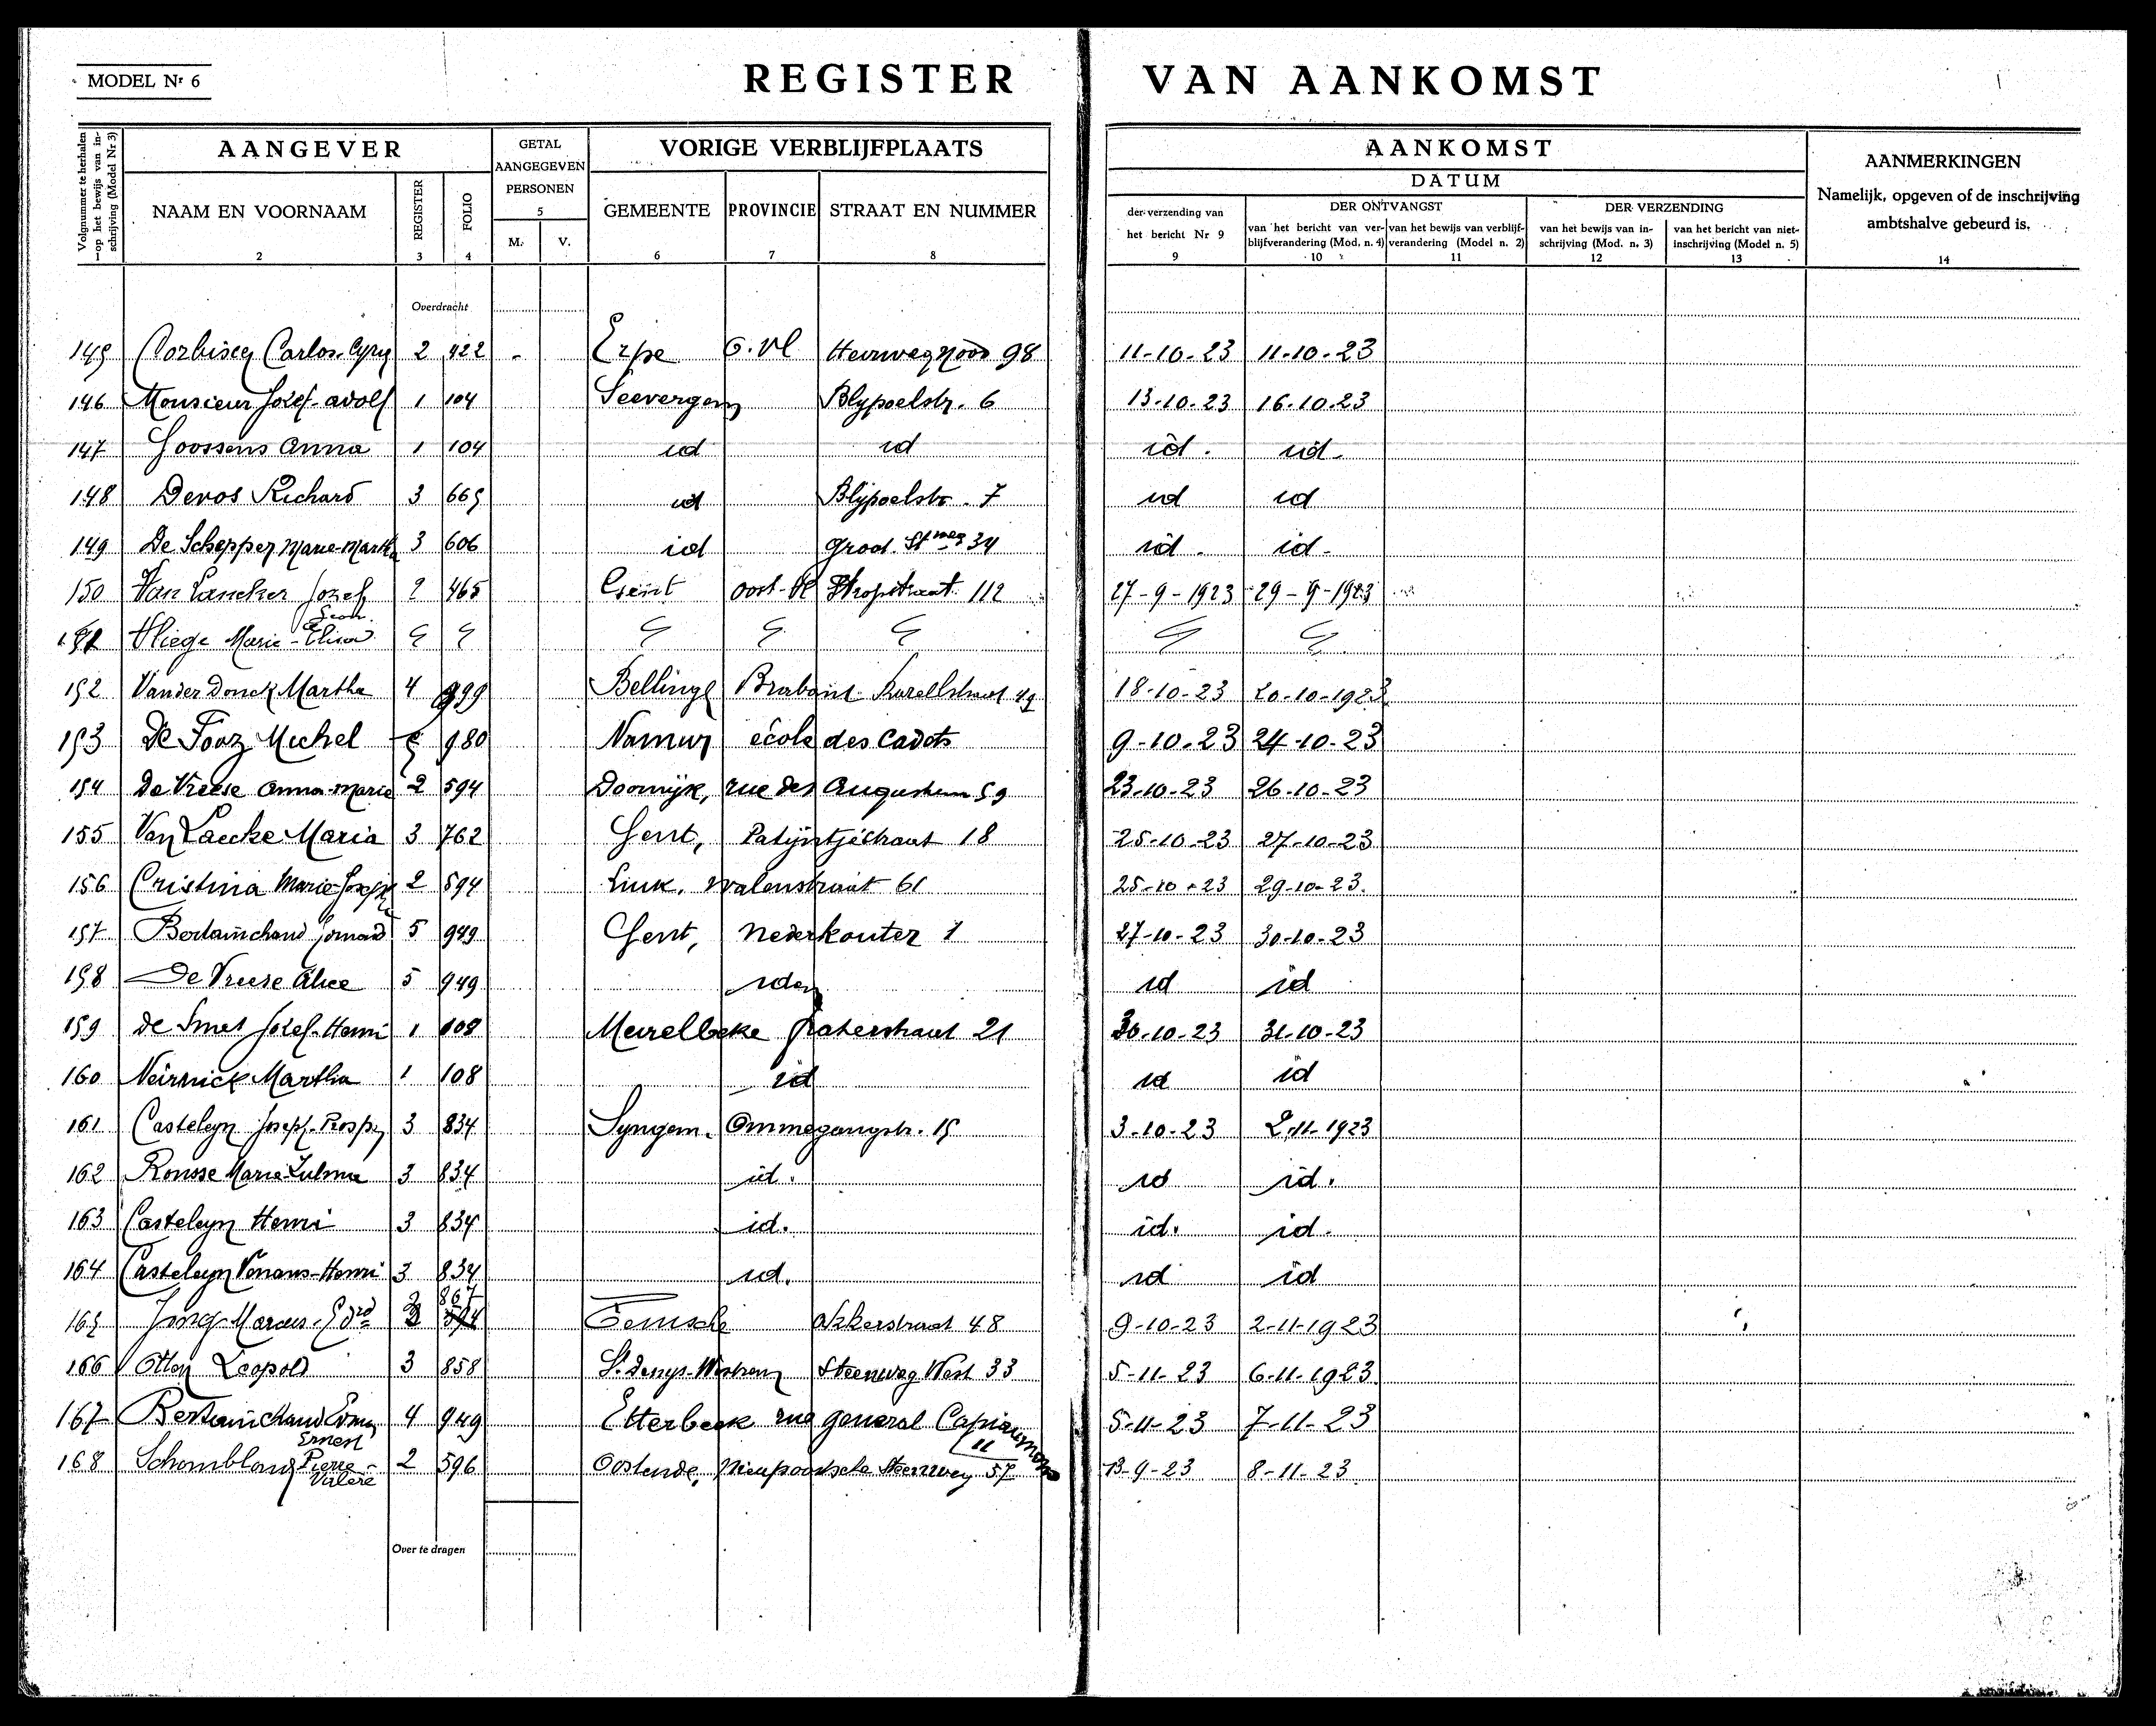 MODEL Nr 6
REGISTER VAN AANKOMST
Volgnummer te herhalen op het bewijs van inschrijving (Model Nr 3)
AANGEVER
GETAL AANGEGEVEN PERSONEN
5
VORIGE VERBLIJFPLAATS
AANKOMST
DATUM
AANMERKINGEN
Namelijk, opgeven of de inschrijving ambtshalve gebeurd is.
NAAM EN VOORNAAM REGISTER FOLIO M. V. GEMEENTE PROVINCIE STRAAT EN NUMMER
der verzending van het bericht Nr 9
DER ONTVANGST
van het bericht van verblijfverandering (Mod. n. 4) van het bewijs van verblijfverandering (Model n. 2)
DER VERZENDING
van het bewijs van inschrijving (Mod. n. 3) van het bericht van niet-inschrijving (Model n. 5)
1 2 3 4 6 7 8 9 10 11 12 13 14
Overdracht
145 Carlos 2 422 Erpe O. Vl 98 11-10-23 11-10-23
146 Monsieur Jozef-adolf 1 104 Seevergem 6 13-10-23 16-10-23
147 Goossens Anna 1 104 id id id. id.
148 Devos Richard 3 665 id Blijpoelstr. 7 id id
149 De Schepper Marie-Marth 3 606 id Groot. Stweg 34 id. id.
150 Van Lancker Jozef Leon 2 465 Gent Oost-Vl Stropstraat 112 27-9-1923 29-9-1923
151 Vliege Marie-Elisa
152 Vander Donck Martha 4 999 Bellinge Brabant 18-10-23 20-10-1923
153 De Fooz Michel 980 Namur école des Cadets 9-10-23 24-10-23
154 De Vreese Anna-Marie 2 594 Doornijk, rue des Augustins 59 23-10-23 26-10-23
155 Van Laecke Maria 3 762 Gent, Patijntjestraat 18 25-10-23 27-10-23
156 Cristina Marie-Josephe 2 594 Luik, Walenstraat 61 25-10-23 29-10-23.
157 Bertainchand 5 949 Gent, Nederkouter 1 27-10-23 30-10-23
158 De Vreese Alice 5 949 idem id id
159 de Smet Jozef-Henri 1 108 Meirelbeke Paterstraat 21 30-10-23 31-10-23
160 Neirnick Martha 1 108 id id id
161 Casteleyn Joseph-Prosper 3 834 Syngem. Ommegangstr. 15 3-10-23 2-11-1923
162 Rousse Marie-Zulma 3 834 id. id id.
163 Casteleyn Henri 3 834 id. id. id.
164 Casteleyn -Henri 3 834 id. id id
165 Marcus 3 867 Temsche Akkerstraat 48 9-10-23 2-11-1923
166 Otton Leopold 3 858 St Denys-Westrem Steenweg West 33 5-11-23 6-11-1923
167 Bertainchand 4 949 Etterbeek rue general Capiaumont 11 5-11-23 7-11-23
168 Ernest Pierre-Valere 2 596 Oostende, Nieupoortsche Steenweg 57 13-9-23 8-11-23
Over te dragen